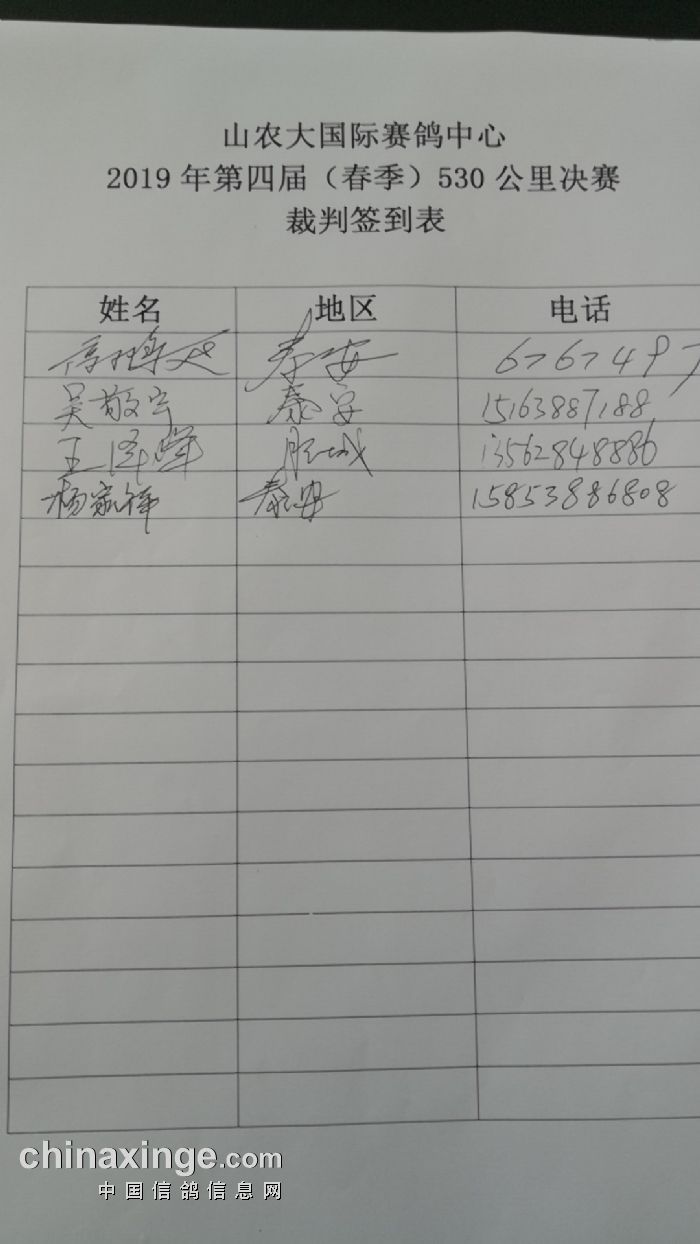 山农大国际赛鸽中心
2019年第四届（春季）530公里决赛
裁判签到表
姓名 地区 电话
泰安 676749
吴敬宁 泰安 15163887188
王泽峰 肥城 13562848886
杨家锋 泰安 15853886808
chinaxinge.com
中国信鸽信息网